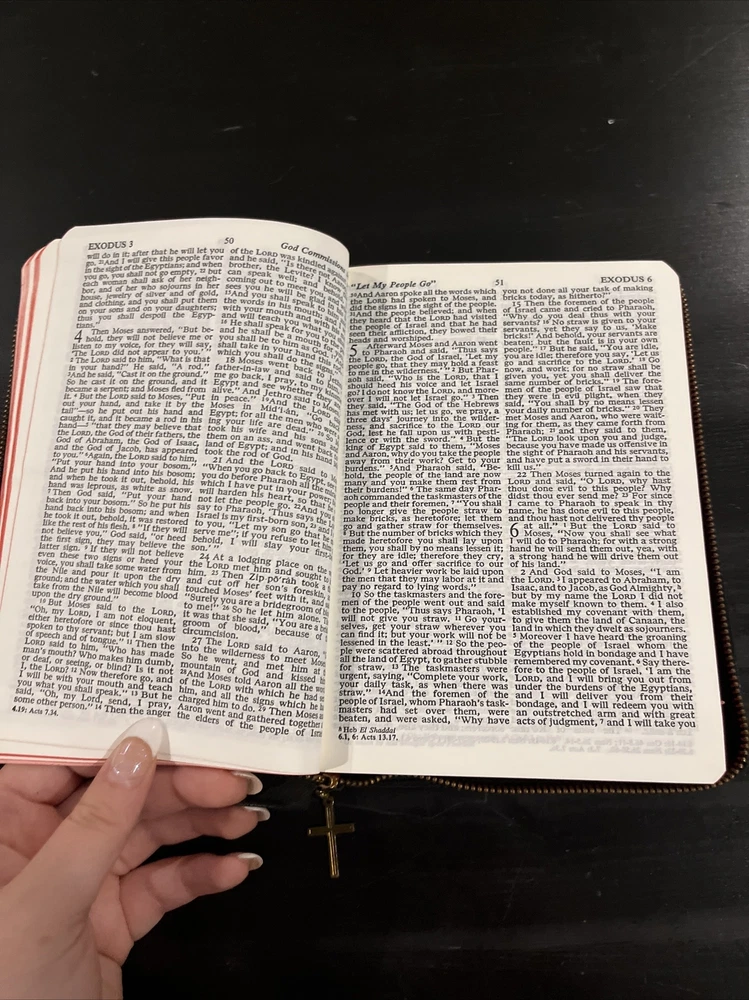 EXODUS 3
50
God Commissions
will do in it; after that he will let you
go. 21And I will give this people favor
in the sight of the Egyptians; and when
you go, you shall not go empty, 22 but
each woman shall ask of her neigh-
bor, and of her who sojourns in her
house, jewelry of silver and of gold,
and clothing, and you shall put them
on your sons and on your daughters;
thus you shall despoil the Egyp-
tians."
4 Then Moses answered, "But be-
hold, they will not believe me or
listen to my voice, for they will say,
'The LORD did not appear to you.' "
2 The LORD said to him, "What is that
in your hand?" He said, "A rod."
3 And he said, "Cast it on the ground."
So he cast it on the ground, and it
became a serpent; and Moses fled from
it. 4 But the LORD said to Moses, "Put
out your hand, and take it by the
tail"—so he put out his hand and
caught it, and it became a rod in his
hand—5 "that they may believe that
the LORD, the God of their fathers, the
God of Abraham, the God of Isaac,
and the God of Jacob, has appeared
to you." 6Again, the LORD said to him,
"Put your hand into your bosom."
And he put his hand into his bosom;
and when he took it out, behold, his
hand was leprous, as white as snow.
7 Then God said, "Put your hand
back into your bosom." So he put his
hand back into his bosom; and when
he took it out, behold, it was restored
like the rest of his flesh. 8 "If they will
not believe you," God said, "or heed
the first sign, they may believe the
latter sign. 9 If they will not believe
even these two signs or heed your
voice, you shall take some water from
the Nile and pour it upon the dry
ground; and the water which you shall
take from the Nile will become blood
upon the dry ground."
10 But Moses said to the LORD,
"Oh, my Lord, I am not eloquent,
either heretofore or since thou hast
spoken to thy servant; but I am slow
of speech and of tongue." 11 Then the
LORD said to him, "Who has made
man's mouth? Who makes him dumb,
or deaf, or seeing, or blind? Is it not
I, the LORD? 12 Now therefore go, and
I will be with your mouth and teach
you what you shall speak." 13 But he
said, "Oh, my Lord, send, I pray,
some other person." 14 Then the anger
4.19: Acts 7.34.
of the LORD was kindled
and he said, "Is there not
brother, the Levite? I
can speak well; and
coming out to meet you,
sees you he will be glad
15And you shall speak
the words in his mouth;
with your mouth and
and will teach you what
16 He shall speak for you
and he shall be a mouth
you shall be to him as God.
shall take in your hand
which you shall do the
18 Moses went back
father-in-law and said
me go back, I pray, to my
Egypt and see whether
alive." And Jethro said to
in peace." 19 And the
Moses in Mid'i·an,
Egypt; for all the men who
ing your life are dead."
took his wife and his sons
them on an ass, and went back
land of Egypt; and in his hand
took the rod of God.
21 And the LORD said to
"When you go back to Egypt,
you do before Pharaoh
which I have put in your power;
will harden his heart, so
not let the people go. 22And you
say to Pharaoh, 'Thus says the
Israel is my first-born son, 23 and
to you, "Let my son go that he
serve me"; if you refuse to let him
behold, I will slay your first-
son.' "
24 At a lodging place on the
the LORD met him and sought to
him. 25 Then Zip·po'rah took
and cut off her son's foreskin,
touched Moses' feet with it, and
"Surely you are a bridegroom of
to me!" 26 So he let him alone.
it was that she said, "You are a
groom of blood," because of
circumcision.
27 The LORD said to Aaron,
into the wilderness to meet Moses."
So he went, and met him at
mountain of God and kissed
28And Moses told Aaron all the
of the LORD with which he had
him, and all the signs which he
charged him to do. 29 Then Moses
Aaron went and gathered together
the elders of the people of
"Let My People Go"
51
EXODUS 6
30And Aaron spoke all the words which
the LORD had spoken to Moses, and
did the signs in the sight of the people.
31And the people believed; and when
they heard that the LORD had visited
the people of Israel and that he had
seen their affliction, they bowed their
heads and worshiped.
5 Afterward Moses and Aaron went
to Pharaoh and said, "Thus says
the LORD, the God of Israel, 'Let my
people go, that they may hold a feast
to me in the wilderness.' " 2 But Phar-
aoh said, "Who is the LORD, that I
should heed his voice and let Israel
go? I do not know the LORD, and more-
over I will not let Israel go." 3 Then
they said, "The God of the Hebrews
has met with us; let us go, we pray, a
three days' journey into the wilder-
ness, and sacrifice to the LORD our
God, lest he fall upon us with pesti-
lence or with the sword." 4 But the
king of Egypt said to them, "Moses
and Aaron, why do you take the people
away from their work? Get to your
burdens." 5And Pharaoh said, "Be-
hold, the people of the land are now
many and you make them rest from
their burdens!" 6 The same day Phar-
aoh commanded the taskmasters of the
people and their foremen, 7 "You shall
no longer give the people straw to
make bricks, as heretofore; let them
go and gather straw for themselves.
8 But the number of bricks which they
made heretofore you shall lay upon
them, you shall by no means lessen it;
for they are idle; therefore they cry,
'Let us go and offer sacrifice to our
God.' 9 Let heavier work be laid upon
the men that they may labor at it and
pay no regard to lying words."
10 So the taskmasters and the fore-
men of the people went out and said
to the people, "Thus says Pharaoh, 'I
will not give you straw. 11 Go your-
selves, get your straw wherever you
can find it; but your work will not be
lessened in the least.' " 12 So the peo-
ple were scattered abroad throughout
all the land of Egypt, to gather stubble
for straw. 13 The taskmasters were
urgent, saying, "Complete your work,
your daily task, as when there was
straw." 14And the foremen of the
people of Israel, whom Pharaoh's task-
masters had set over them, were
beaten, and were asked, "Why have
h Heb El Shaddai
6.1, 6: Acts 13.17.
you not done all your task of making
bricks today, as hitherto?"
15 Then the foremen of the people
of Israel came and cried to Pharaoh,
"Why do you deal thus with your
servants? 16 No straw is given to your
servants, yet they say to us, 'Make
bricks!' And behold, your servants are
beaten; but the fault is in your own
people." 17 But he said, "You are idle,
you are idle; therefore you say, 'Let us
go and sacrifice to the LORD.' 18 Go
now, and work; for no straw shall be
given you, yet you shall deliver the
same number of bricks." 19 The fore-
men of the people of Israel saw that
they were in evil plight, when they
said, "You shall by no means lessen
your daily number of bricks." 20 They
met Moses and Aaron, who were wait-
ing for them, as they came forth from
Pharaoh; 21 and they said to them,
"The LORD look upon you and judge,
because you have made us offensive in
the sight of Pharaoh and his servants,
and have put a sword in their hand to
kill us."
22 Then Moses turned again to the
LORD and said, "O LORD, why hast
thou done evil to this people? Why
didst thou ever send me? 23 For since
I came to Pharaoh to speak in thy
name, he has done evil to this people,
and thou hast not delivered thy people
6 at all." 1 But the LORD said to
Moses, "Now you shall see what
I will do to Pharaoh; for with a strong
hand he will send them out, yea, with
a strong hand he will drive them out
of his land."
2 And God said to Moses, "I am
the LORD. 3 I appeared to Abraham, to
Isaac, and to Jacob, as God Almighty,h
but by my name the LORD I did not
make myself known to them. 4 I also
established my covenant with them,
to give them the land of Canaan, the
land in which they dwelt as sojourners.
5 Moreover I have heard the groaning
of the people of Israel whom the
Egyptians hold in bondage and I have
remembered my covenant. 6 Say there-
fore to the people of Israel, 'I am the
LORD, and I will bring you out from
under the burdens of the Egyptians,
and I will deliver you from their
bondage, and I will redeem you with
an outstretched arm and with great
acts of judgment, 7 and I will take you